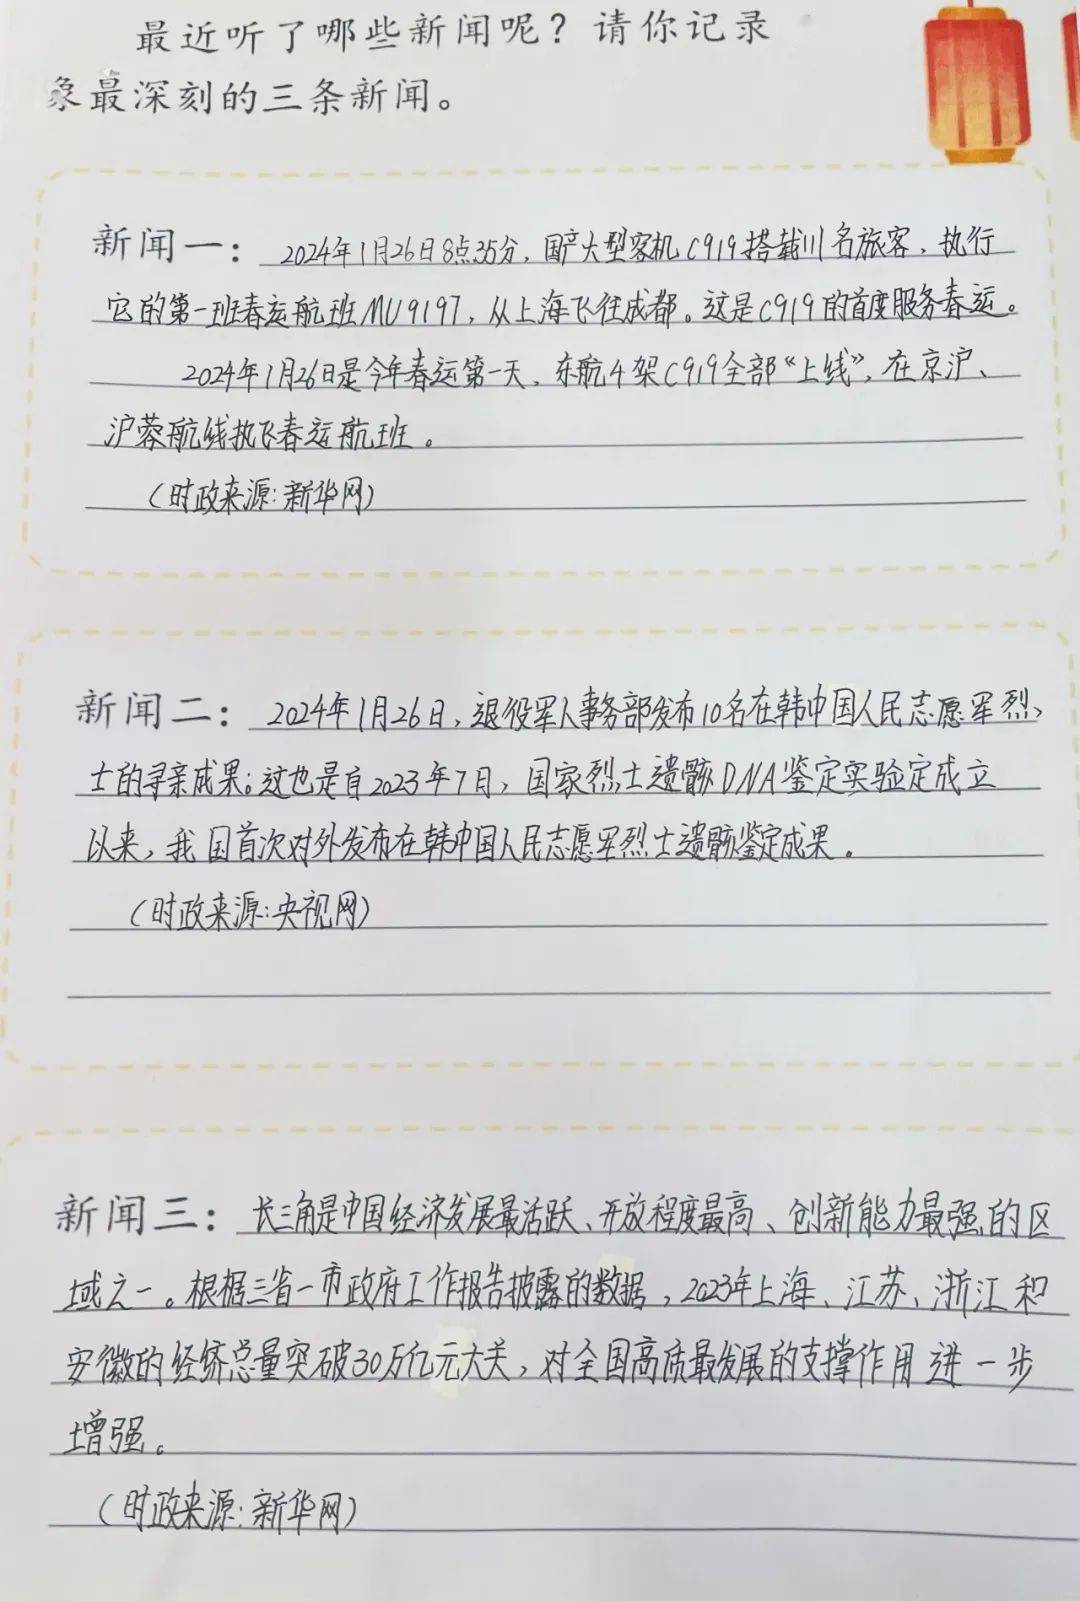 最近听了哪些新闻呢？请你记录
象最深刻的三条新闻。
新闻一：2024年1月26日8点35分，国产大型客机C919搭载111名旅客，执行
它的第一班春运航班MU9197，从上海飞往成都。这是C919的首度服务春运。
2024年1月26日是今年春运第一天，东航4架C919全部“上线”，在京沪、
沪蓉航线执飞春运航班。
（时政来源：新华网）
新闻二：2024年1月26日，退役军人事务部发布10名在韩中国人民志愿军烈
士的寻亲成果。这也是自2023年7月，国家烈士遗骸DNA鉴定实验定成立
以来，我国首次对外发布在韩中国人民志愿军烈士遗骸鉴定成果。
（时政来源：央视网）
新闻三：长三角是中国经济发展最活跃、开放程度最高、创新能力最强的区
域之一。根据三省一市政府工作报告披露的数据，2023年上海、江苏、浙江和
安徽的经济总量突破30万亿元大关，对全国高质最发展的支撑作用进一步
增强。
（时政来源：新华网）